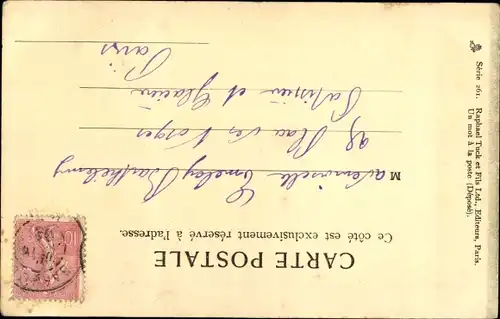 CARTE POSTALE
Ce côté est exclusivement réservé à l'adresse.
Mademoiselle Barthélemy
28 Place des Vosges
Patissier et Glacier
Paris
Série 261. Raphael Tuck et Fils Ltd., Editeurs, Paris.
Un mot à la poste (Déposé).